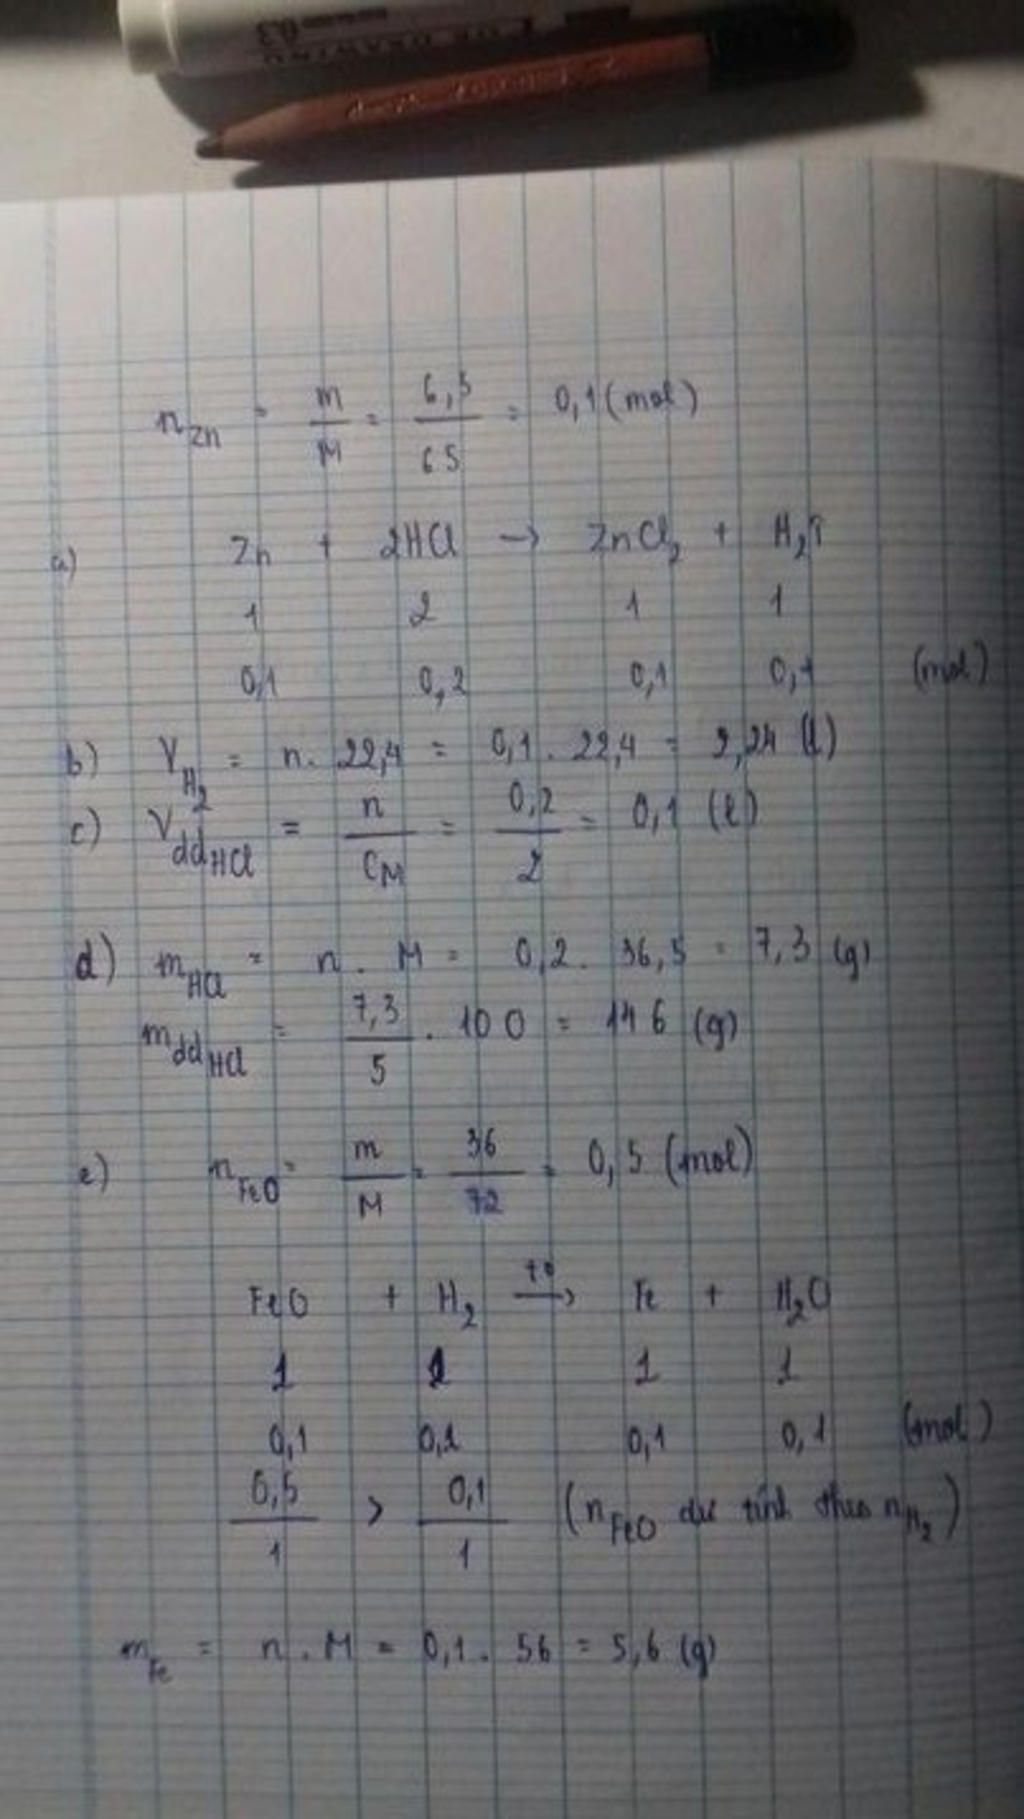 0.3
DRAWING
n_Zn = m/M = 6,5/65 = 0,1 (mol)
a) Zn + 2HCl → ZnCl₂ + H₂↑
1 2 1 1
0,1 0,2 0,1 0,1 (mol)
b) V_H₂ = n. 22,4 = 0,1. 22,4 = 2,24 (l)
c) V_ddHCl = n/CM = 0,2/2 = 0,1 (l)
d) m_HCl = n. M = 0,2. 36,5 = 7,3 (g)
m_ddHCl = 7,3/5 . 100 = 146 (g)
e) n_FeO = m/M = 36/72 = 0,5 (mol)
FeO + H₂ –t°→ Fe + H₂O
1 1 1 1
0,1 0,1 0,1 0,1 (mol)
0,5/1 > 0,1/1 (n_FeO dư tính theo n_H₂)
m_Fe = n. M = 0,1. 56 = 5,6 (g)